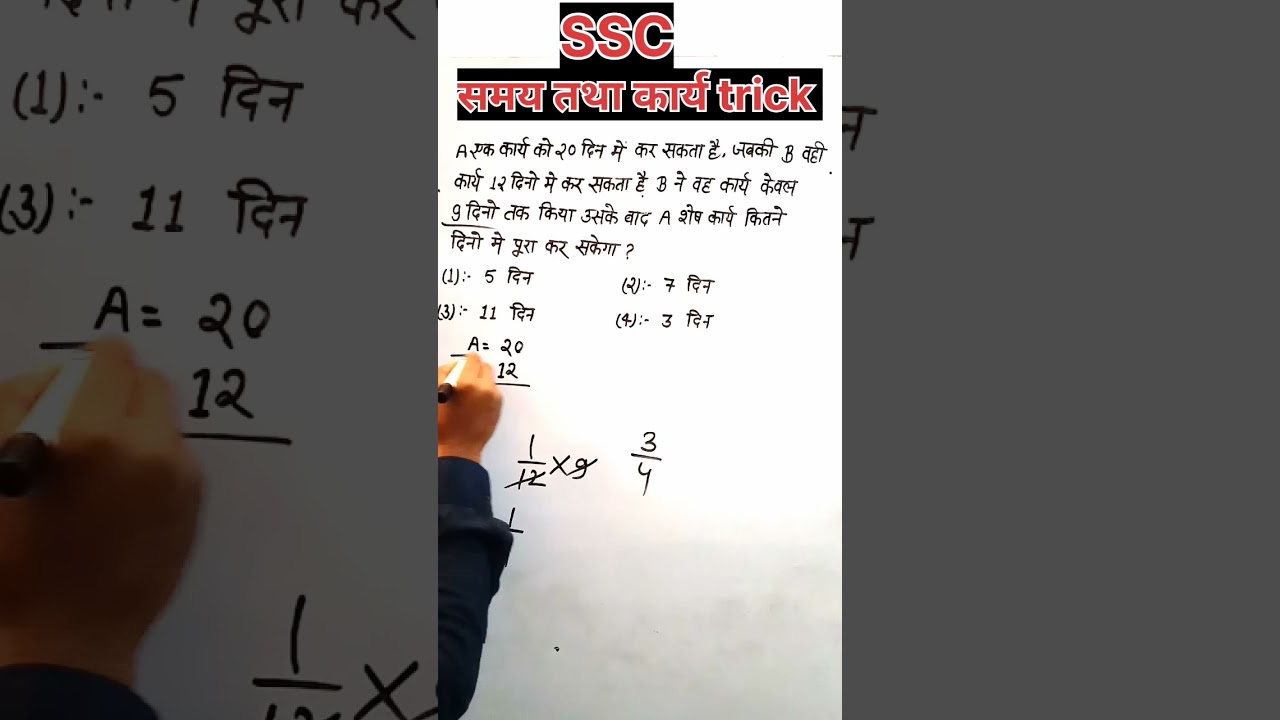 SSC
समय तथा कार्य trick
A एक कार्य को २० दिन में कर सकता है, जबकी B वही
कार्य 12 दिनो मे कर सकता है B ने वह कार्य केवल
9 दिनो तक किया उसके बाद A शेष कार्य कितने
दिनो मे पूरा कर सकेगा ?
(1):- 5 दिन
(२):- 7 दिन
(3):- 11 दिन
(4):- 3 दिन
A = 20
12
1/12 × 9
3/4
1
(1):- 5 दिन
(3):- 11 दिन
A = 20
12
1/12 ×